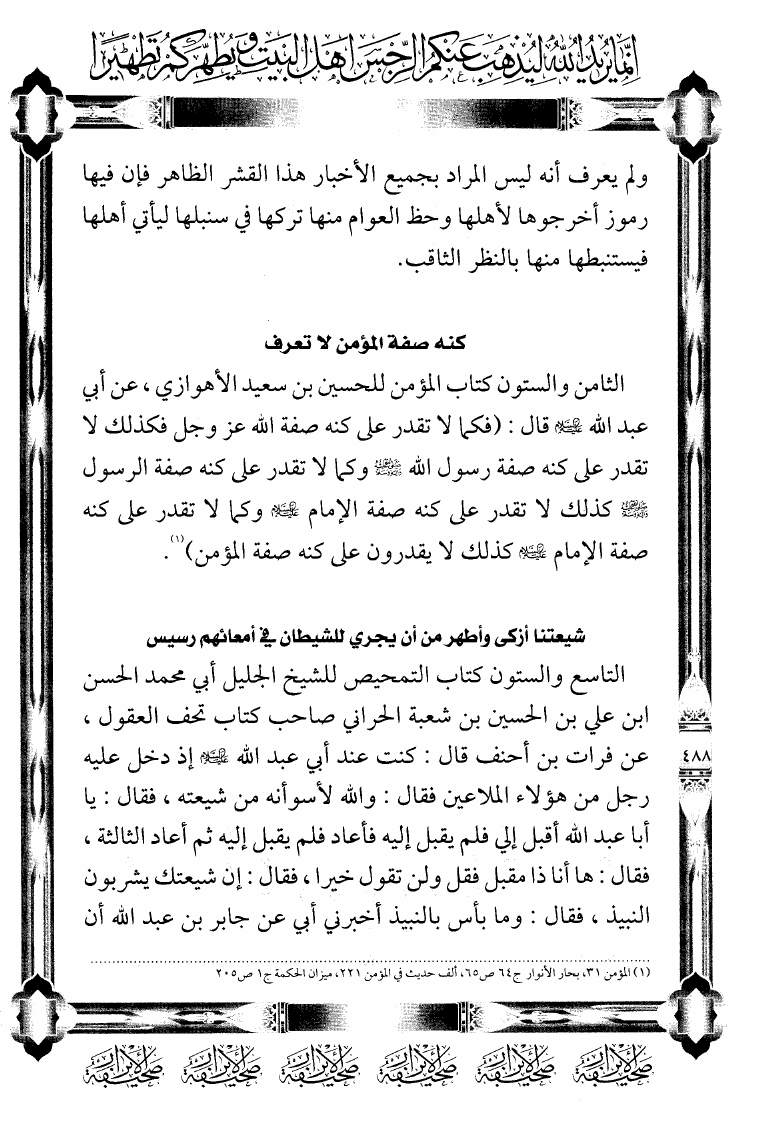 إنما يريد الله ليذهب عنكم الرجس أهل البيت ويطهركم تطهيرا
ولم يعرف أنه ليس المراد بجميع الأخبار هذا القشر الظاهر فإن فيها
رموز أخرجوها لأهلها وحظ العوام منها تركها في سنبلها ليأتي أهلها
فيستنبطها منها بالنظر الثاقب.
كنه صفة المؤمن لا تعرف
الثامن والستون كتاب المؤمن للحسين بن سعيد الأهوازي ، عن أبي
عبد الله عليه السلام قال : (فكما لا تقدر على كنه صفة الله عز وجل فكذلك لا
تقدر على كنه صفة رسول الله ﷺ وكما لا تقدر على كنه صفة الرسول
ﷺ كذلك لا تقدر على كنه صفة الإمام عليه السلام وكما لا تقدر على كنه
صفة الإمام عليه السلام كذلك لا يقدرون على كنه صفة المؤمن)(١).
شيعتنا أزكى وأطهر من أن يجري للشيطان في أمعائهم رسيس
التاسع والستون كتاب التمحيص للشيخ الجليل أبي محمد الحسن
ابن علي بن الحسين بن شعبة الحراني صاحب كتاب تحف العقول ،
عن فرات بن أحنف قال : كنت عند أبي عبد الله عليه السلام إذ دخل عليه
رجل من هؤلاء الملاعين فقال : والله لأسوأنه من شيعته ، فقال : يا
أبا عبد الله أقبل إلي فلم يقبل إليه فأعاد فلم يقبل إليه ثم أعاد الثالثة ،
فقال : ها أنا ذا مقبل فقل ولن تقول خيرا ، فقال : إن شيعتك يشربون
النبيذ ، فقال : وما بأس بالنبيذ أخبرني أبي عن جابر بن عبد الله أن
٤٨٨
(١) المؤمن ٣١، بحار الأنوار ج٦٤ ص٦٥، ألف حديث في المؤمن ٢٢١، ميزان الحكمة ج١ ص٢٠٥